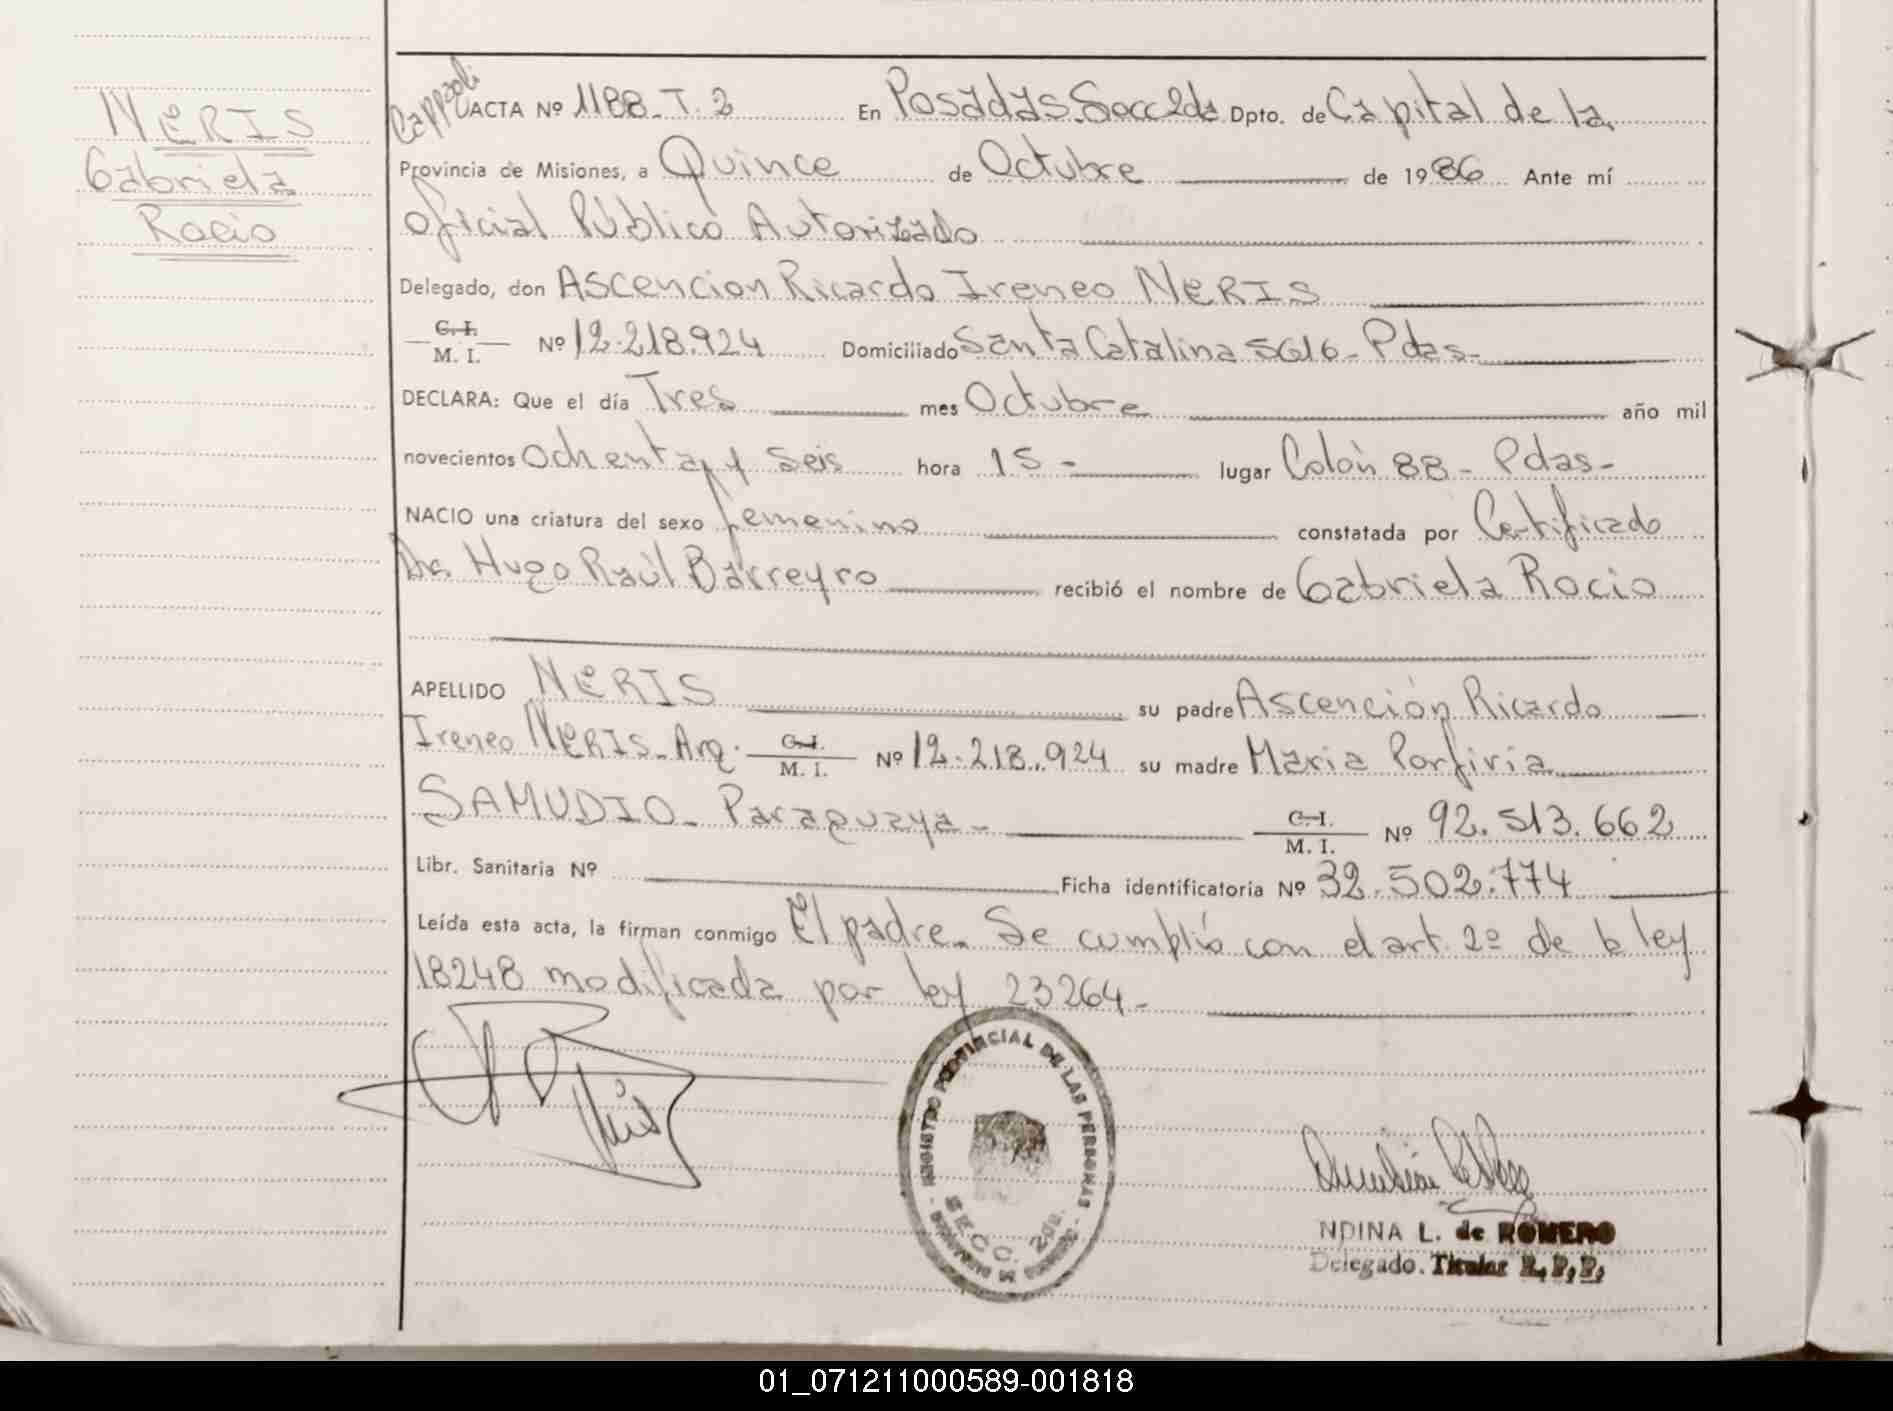 NERIS
Gabriela
Rocio
ACTA Nº 1188 - T. 2 En Posadas Secc 2da Dpto. de Capital de la
Provincia de Misiones, a Quince de Octubre de 1986 Ante mí
Oficial Público Autorizado
Delegado, don Ascencion Ricardo Ireneo NERIS
C. I.
M. I. Nº 12.218.924 Domiciliado Santa Catalina 5616 - Pdas -
DECLARA: Que el día Tres mes Octubre año mil
novecientos Ochenta y Seis hora 15 - lugar Colón 88 - Pdas -
NACIO una criatura del sexo femenino constatada por Certificado
Dr. Hugo Raúl Barreyro recibió el nombre de Gabriela Rocio
APELLIDO NERIS su padre Ascención Ricardo
Ireneo NERIS - Arg. C. I. M. I. Nº 12.218.924 su madre Maria Porfiria
SAMUDIO - Paraguaya - C. I. M. I. Nº 92.513.662
Libr. Sanitaria Nº Ficha identificatoria Nº 32.502.774
Leída esta acta, la firman conmigo El padre. Se cumplió con el art. 2º de la ley
18248 modificada por ley 23264 -
REGISTRO PROVINCIAL DE LAS PERSONAS
SECC. 2da.
NDINA L. de ROMERO
Delegado. Titular R. P. P.
01_071211000589-001818